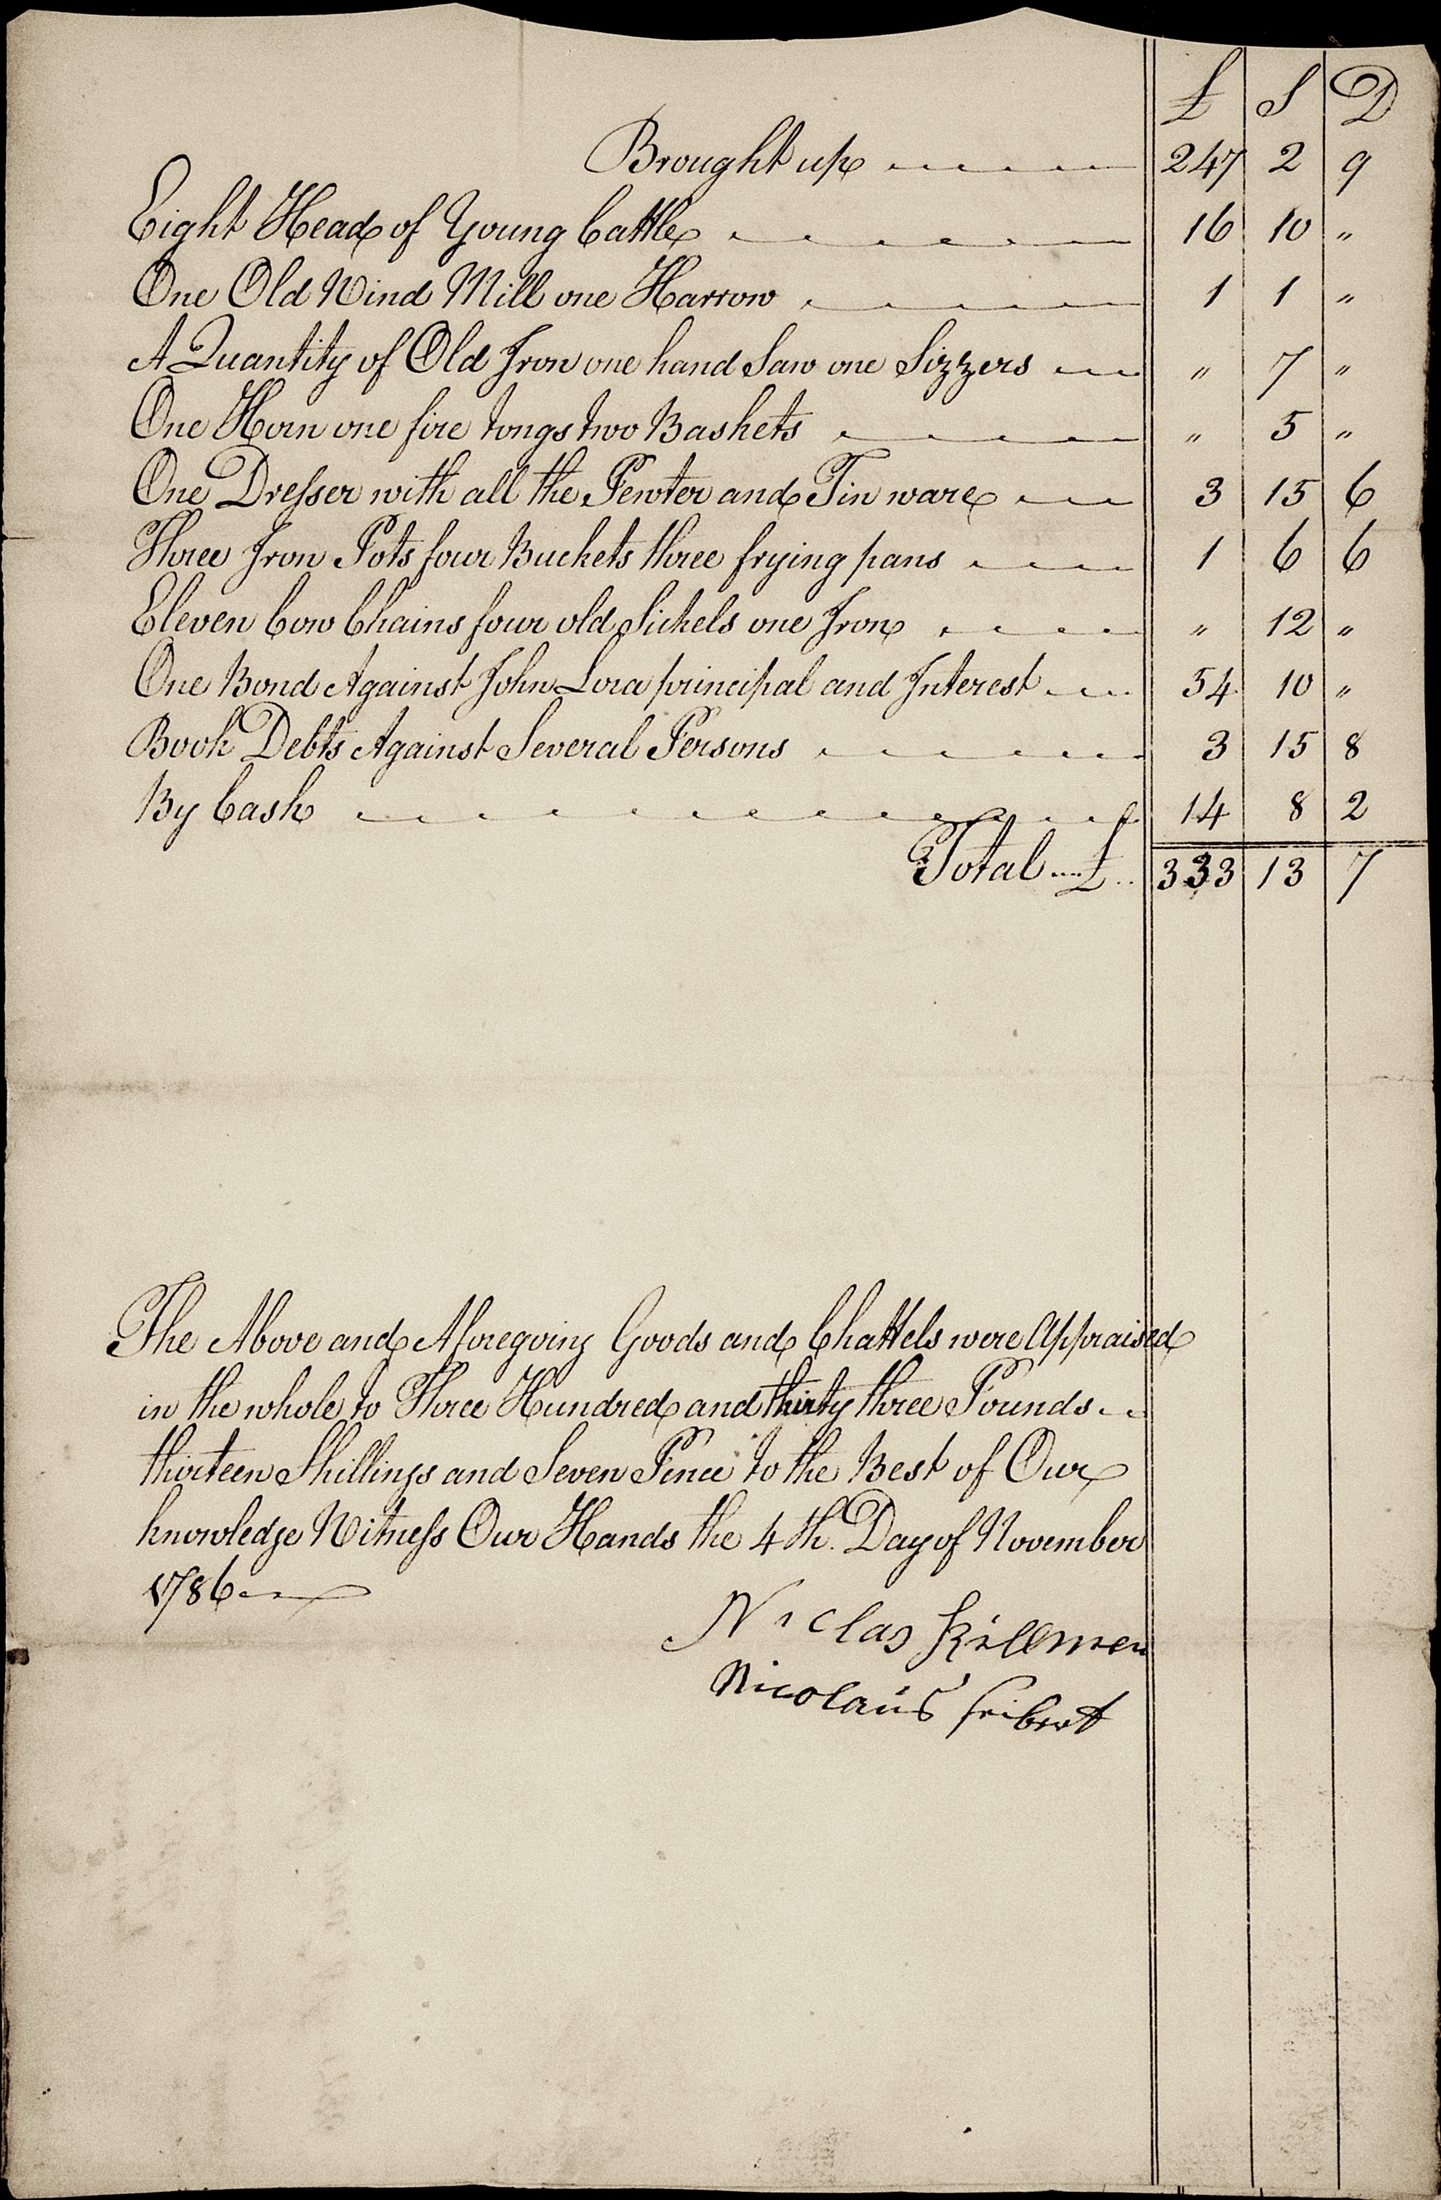 £ S D
Brought up 247 2 9
Eight Head of Young Cattle 16 10 "
One Old Wind Mill one Harrow 1 1 "
A Quantity of Old Iron one hand Saw one Sizzers " 7 "
One Horn one fire tongs two Baskets " 5 "
One Dresser with all the Pewter and Tin ware 3 15 6
Three Iron Pots four Buckets three frying pans 1 6 6
Eleven Cow Chains four old Sickels one Iron " 12 "
One Bond Against John Lora principal and Interest 54 10 "
Book Debts Against Several Persons 3 15 8
By Cash 14 8 2
Total £ 333 13 7
The Above and Aforegoing Goods and Chattels were Appraised
in the whole to Three Hundred and thirty three Pounds
thirteen Shillings and Seven Pence to the Best of Our
knowledge Witness Our Hands the 4th. Day of November
1786
Niclas Killmer
Nicolaus Seibert